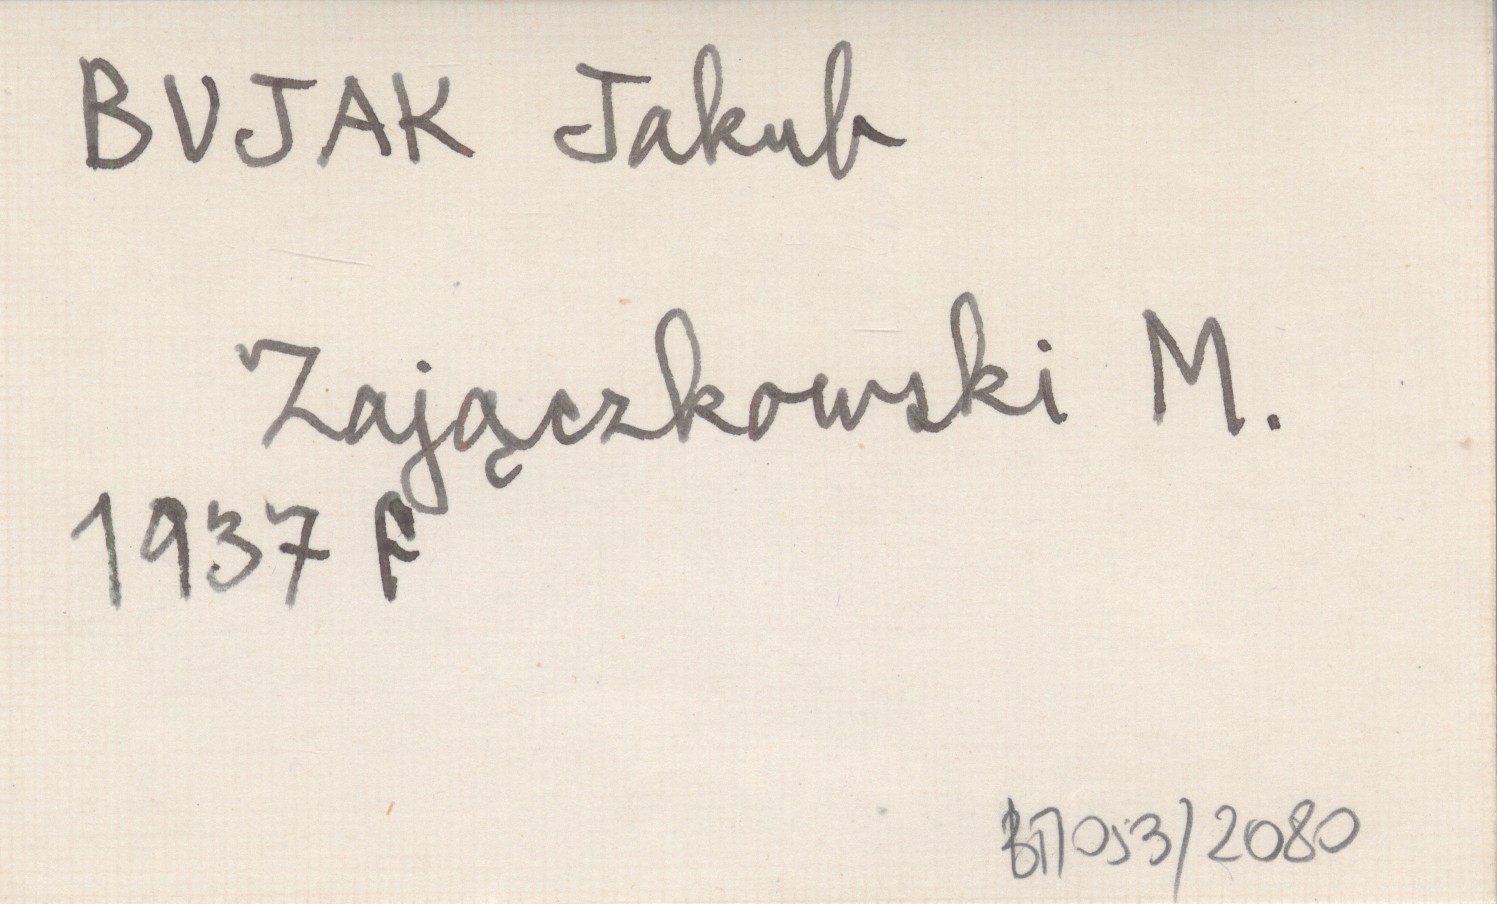 BUJAK Jakub
Zajączkowski M.
1937 F
/2080